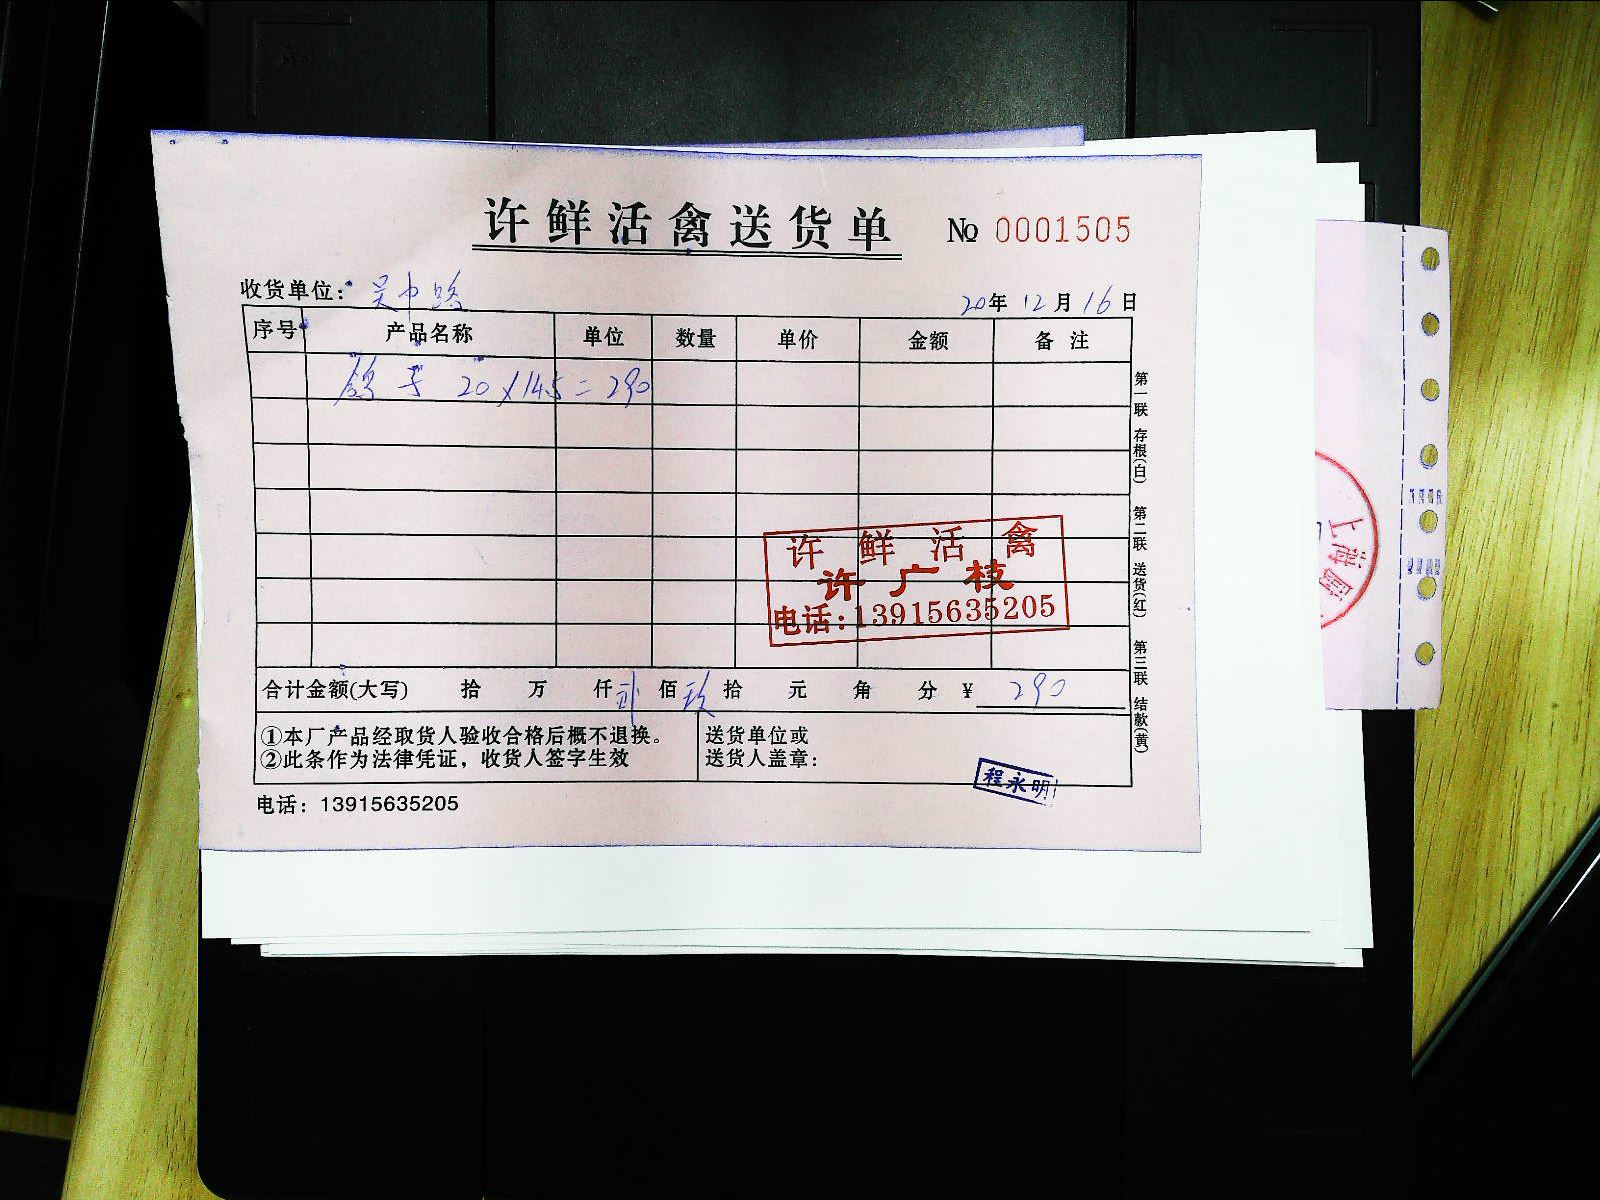 许鲜活禽送货单 № 0001505
收货单位：吴中路 20年12月16日
序号 产品名称 单位 数量 单价 金额 备注
鸽子 20×14.5=290
许鲜活禽
许广枝
电话:13915635205
合计金额(大写) 拾 万 仟 贰 佰 玖 拾 元 角 分 ¥ 290
①本厂产品经取货人验收合格后概不退换。
②此条作为法律凭证，收货人签字生效
送货单位或
送货人盖章：
程永明
电话：13915635205
第一联 存根(白) 第二联 送货(红) 第三联 结款(黄)
上海